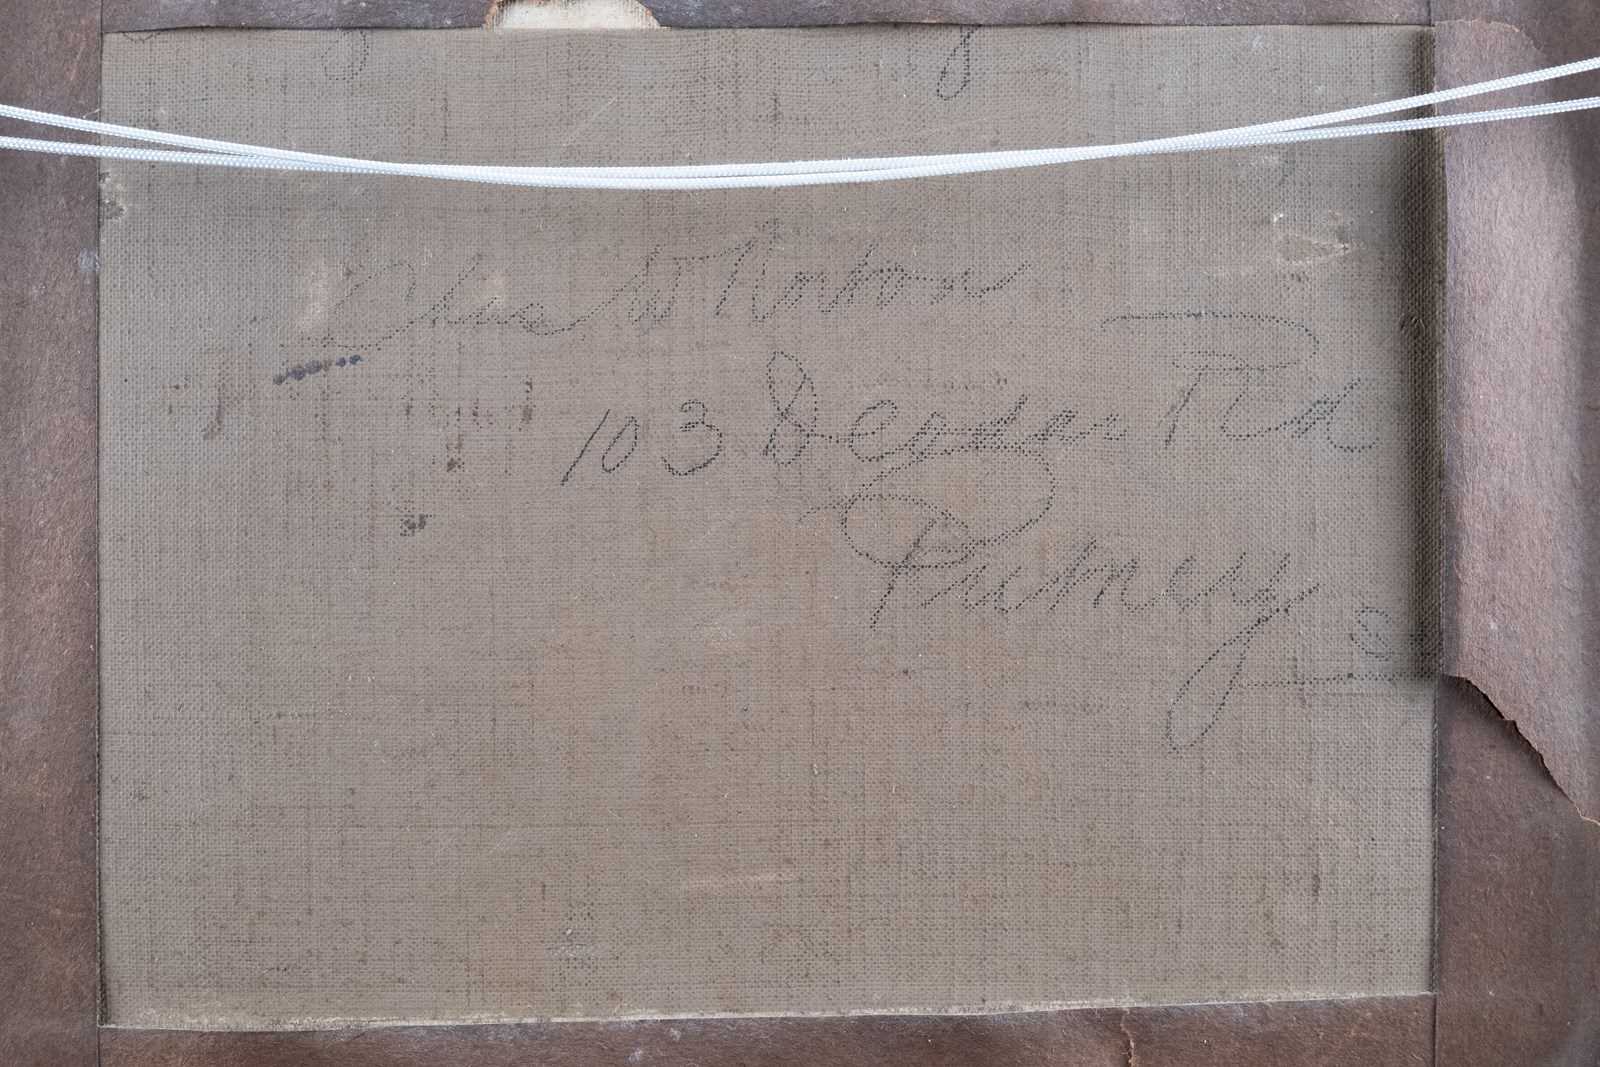 Chas W Norton
103 Deodar Rd
Putney